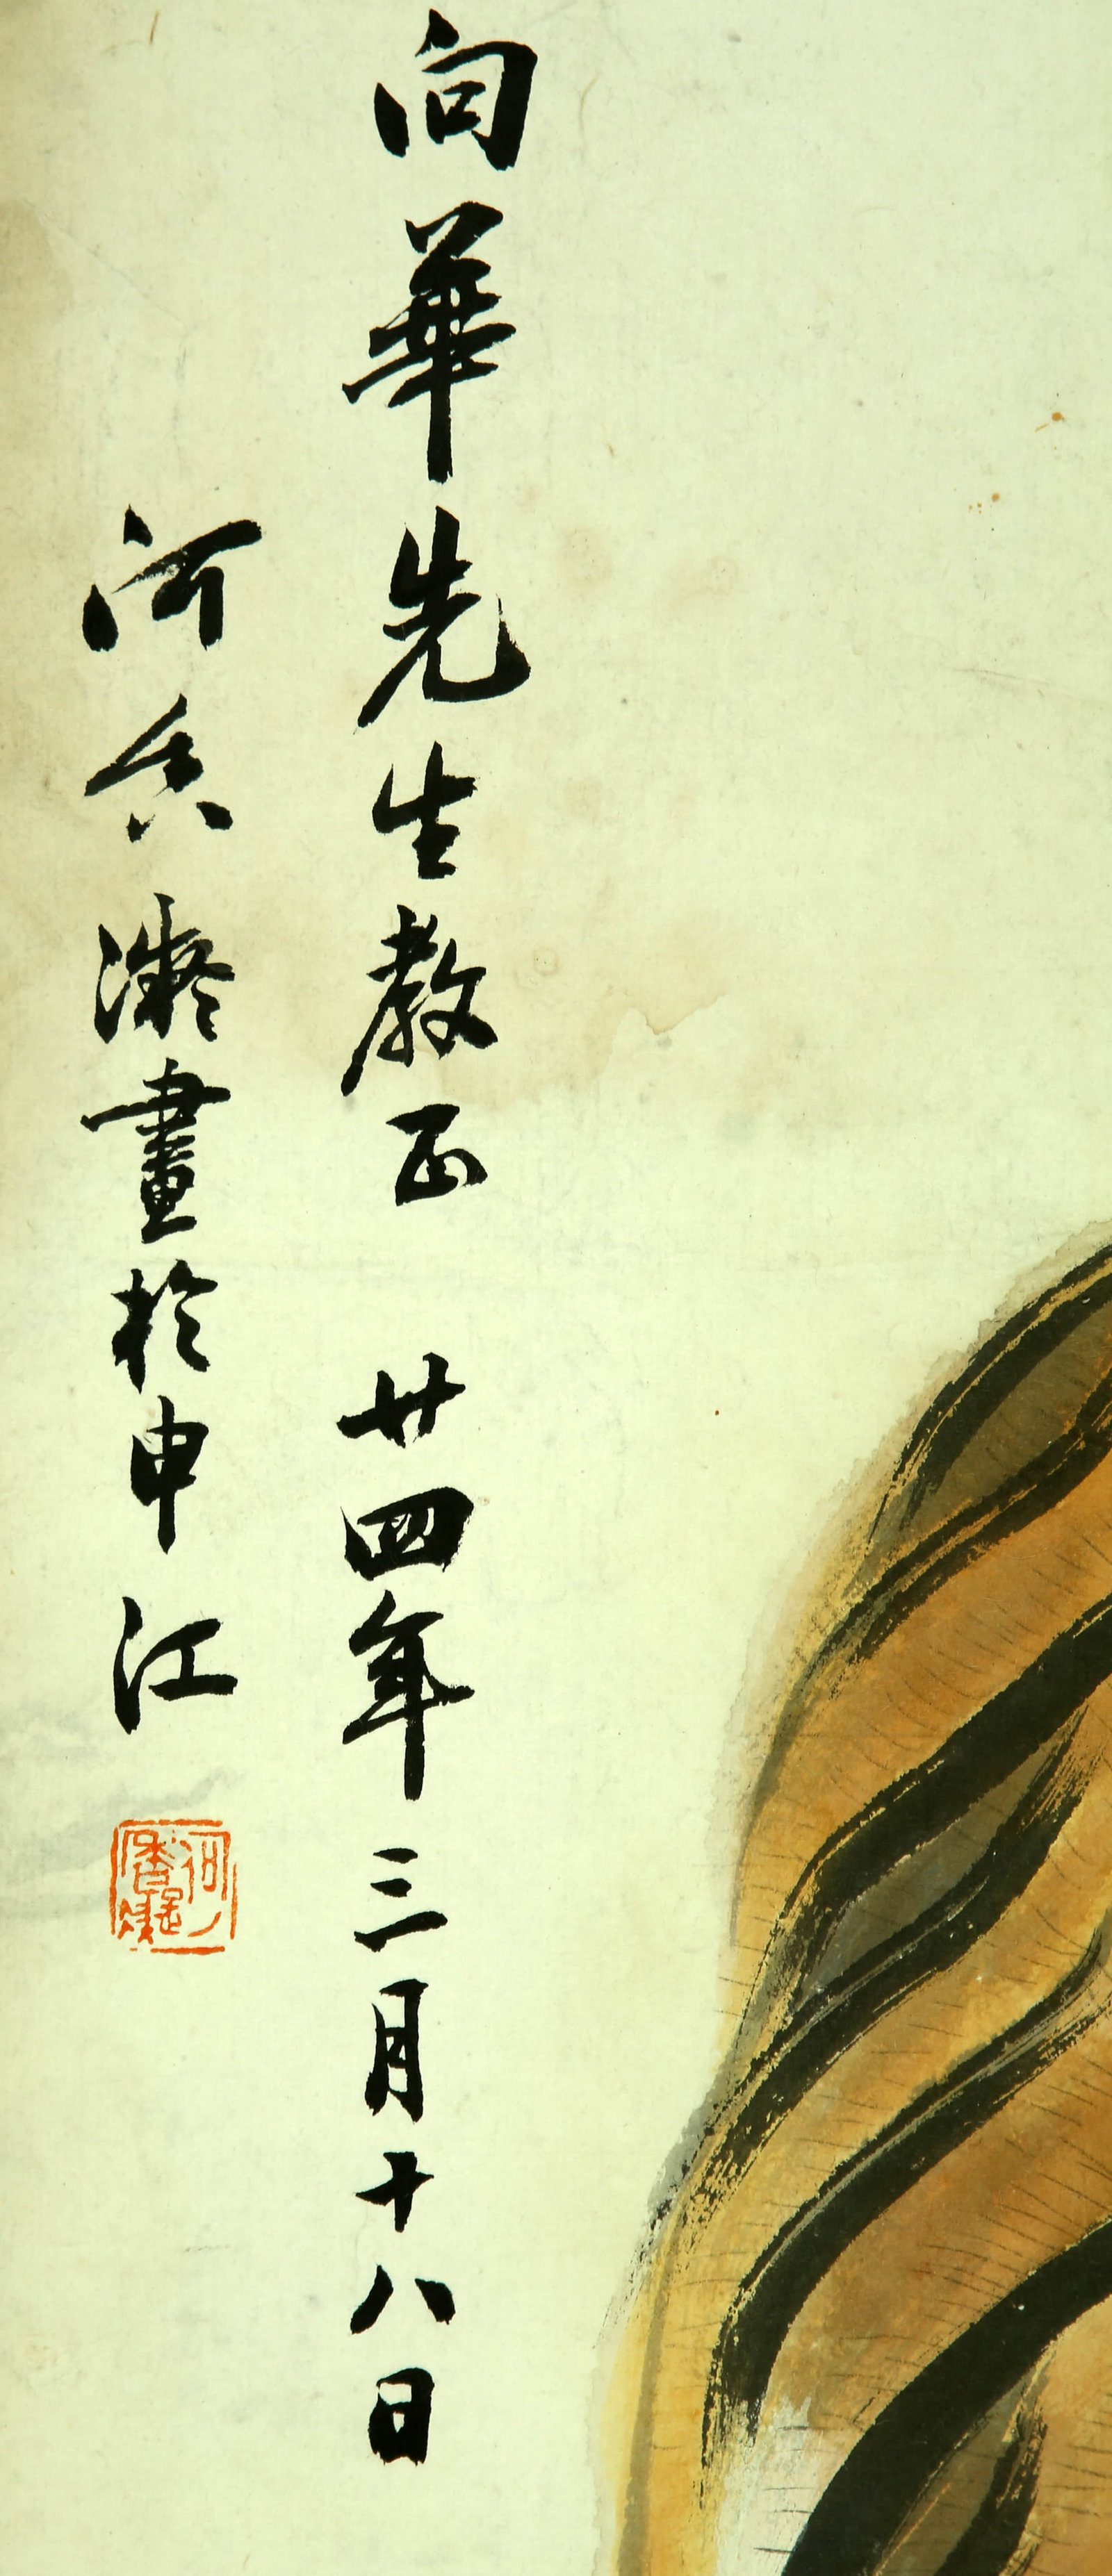 向華先生教正 廿四年三月十八日
何香凝畫於申江
何香凝